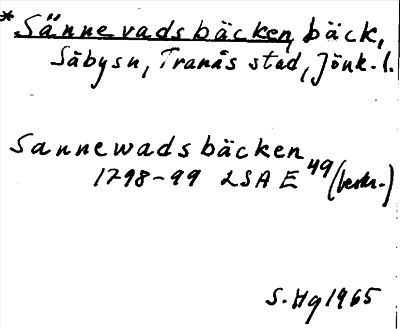 * Sännevadsbäcken, bäck,
Säbysn, Tranås stad, Jönk. l.
Sannewadsbäcken
1798-99 LSA E 49 (beskr.)
S. Hg 1965